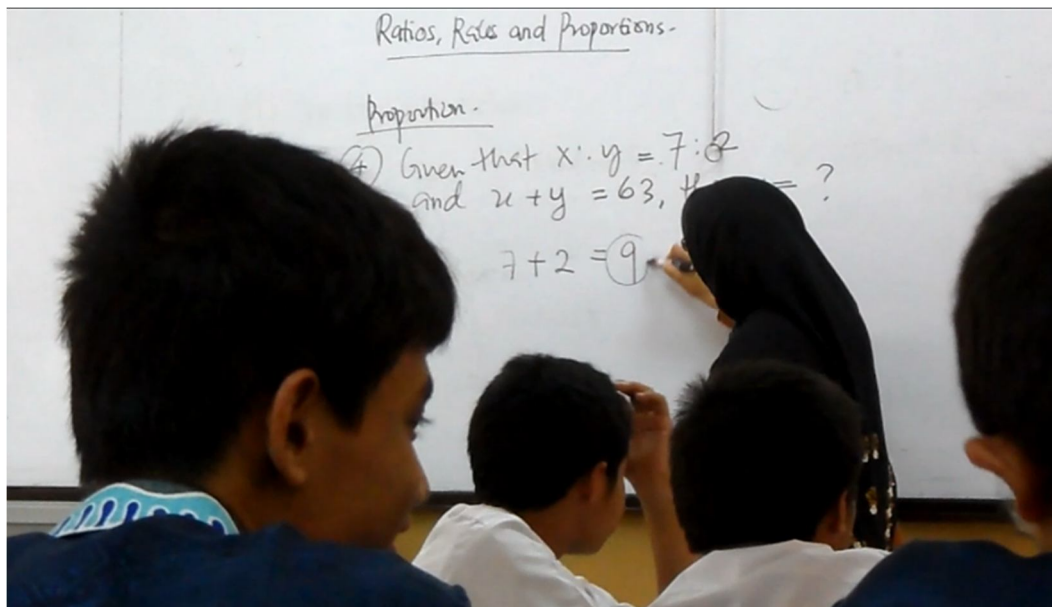 Ratios, Rates and Proportions.
Proportion.
④ Given that x : y = 7:2
and x + y = 63, = ?
7 + 2 = 9